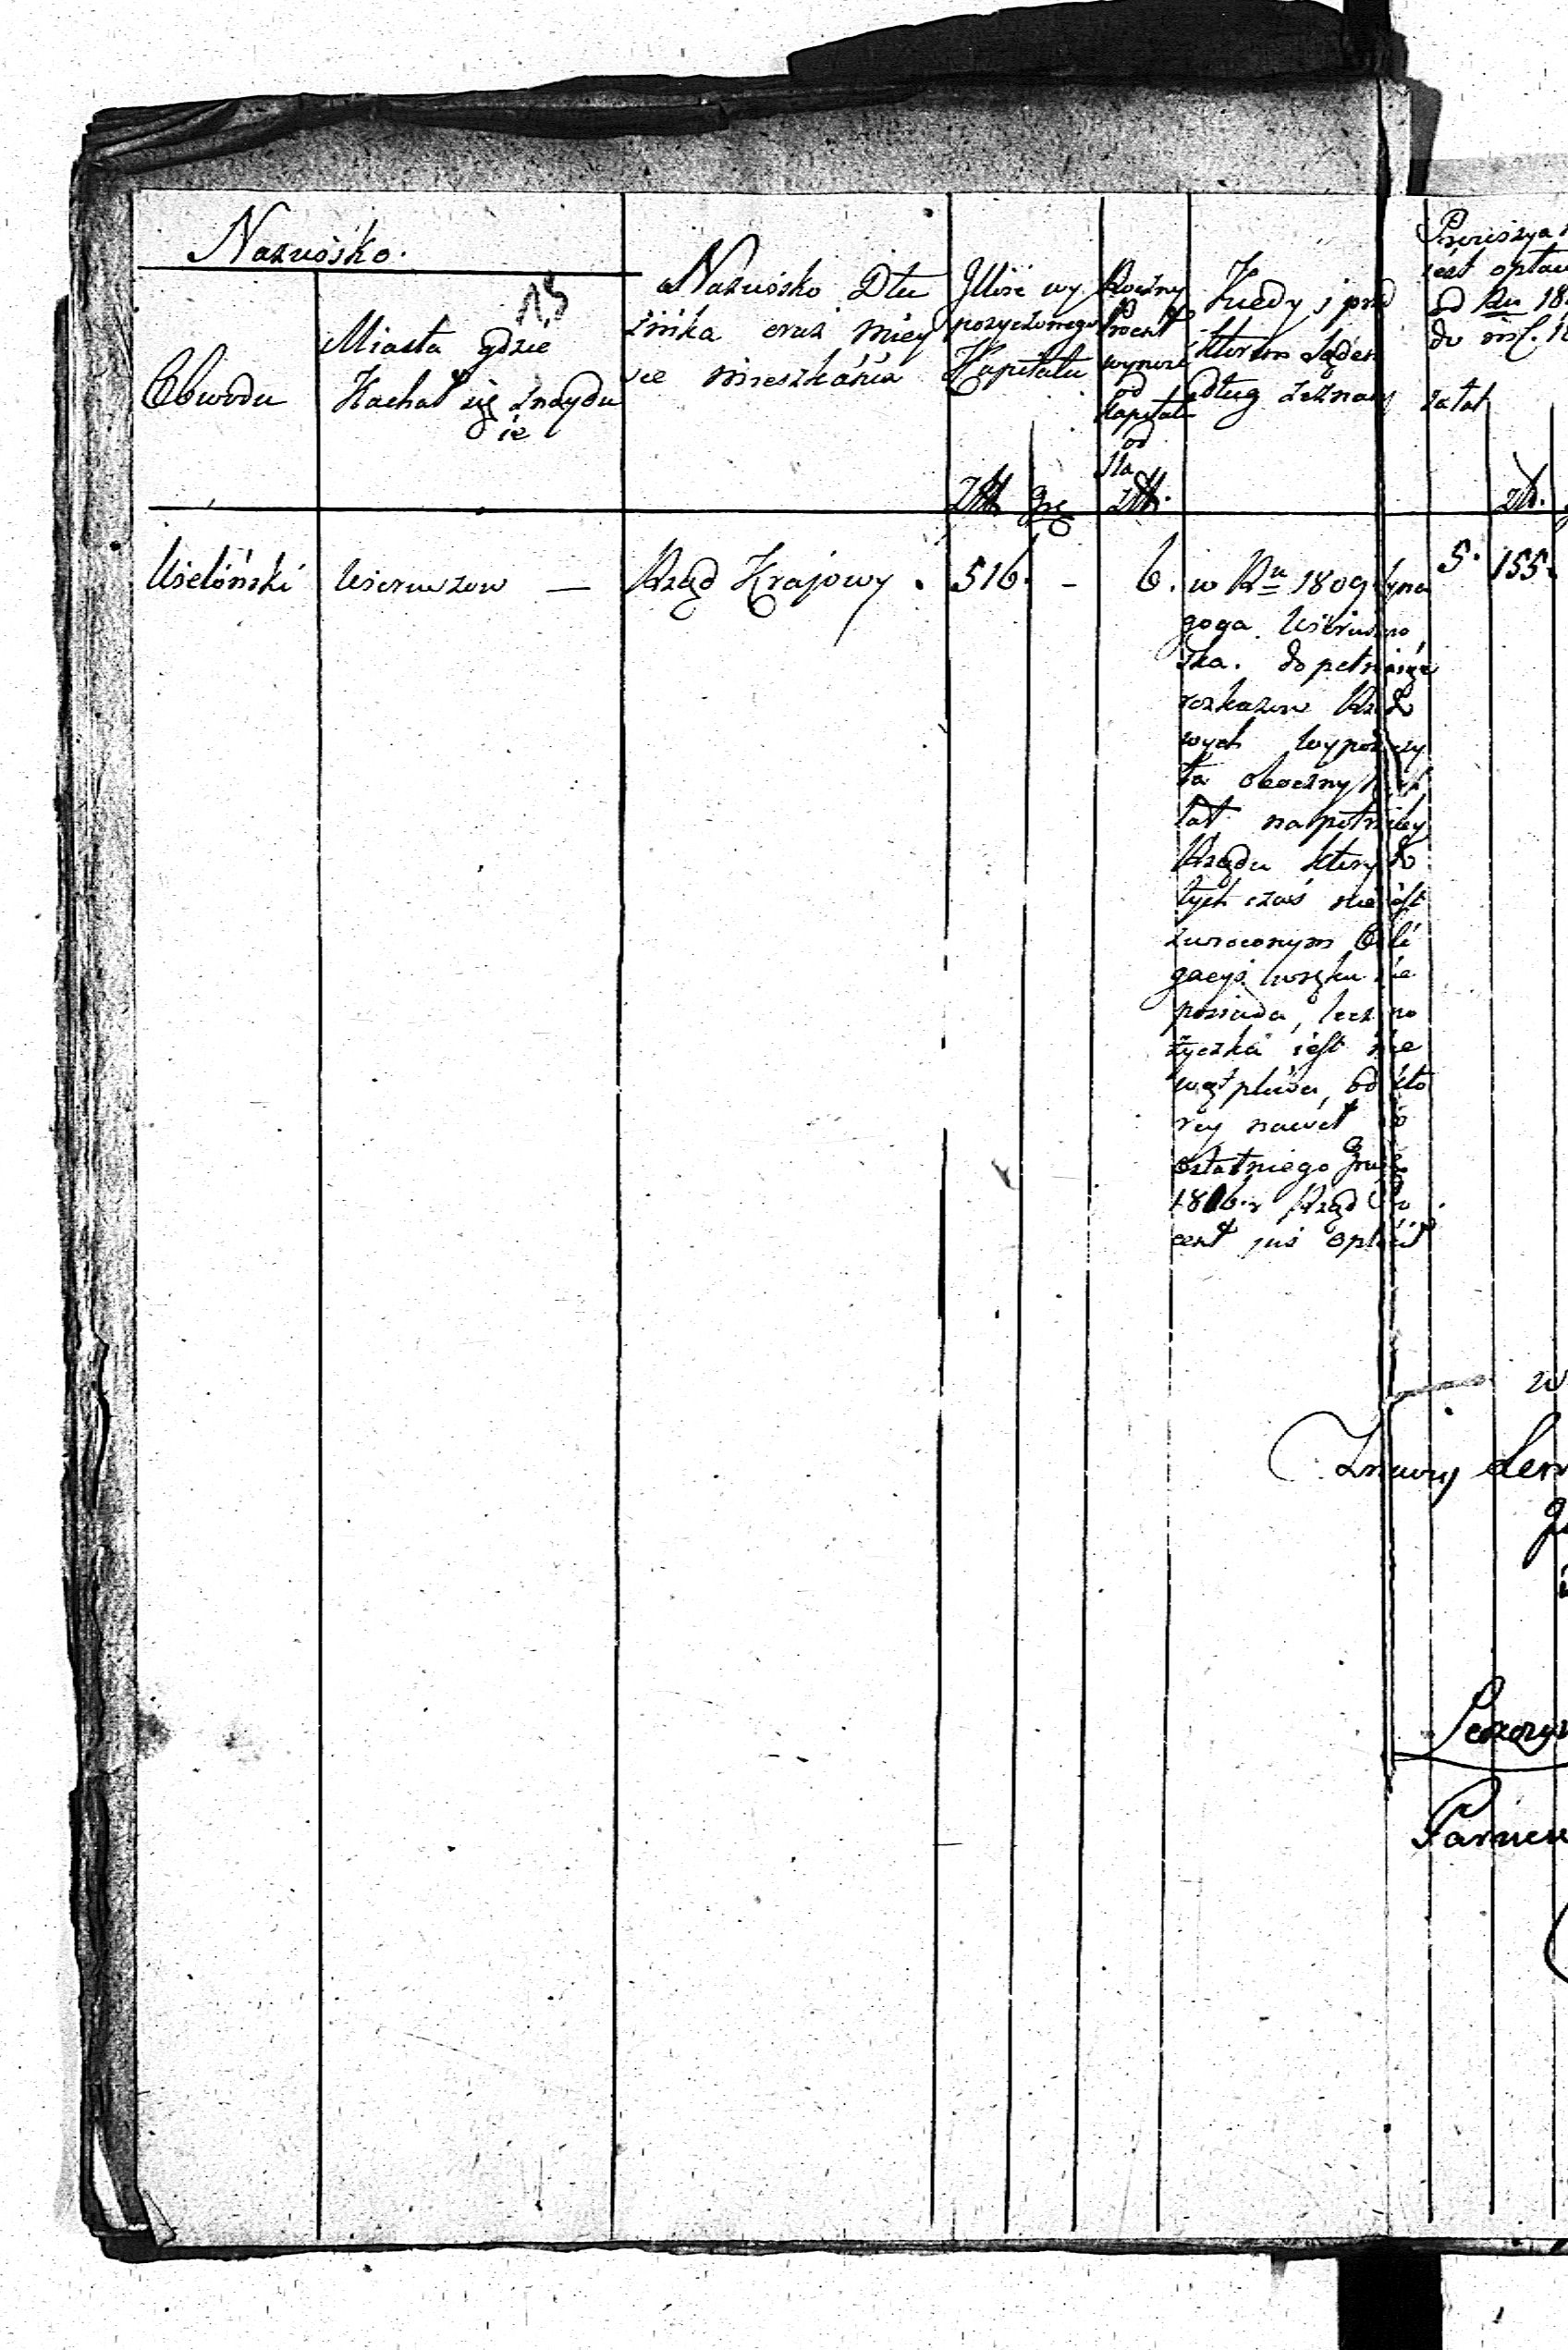 Nazwisko.
15
Obwodu
Miasta gdzie
Kachał się znaydu
ie
Nazwisko Dłu
żnika oraz miey
sce mieszkania
Jllość wy
pożyczonego
Kapitału
Złł grg
Roczny
Procent
wynosi
od
Kapitału
od
sta
Złł.
Kiedy i przed
którem Sądem
dług zeznany
jest opłac
od Ru 18
do
za lat
zł.
Wieloński
Wieruszow —
Rząd Krajowy.
516. -
6.
w Ru 1809 Syna
goga Wieruszo
ska. dopełniaiąc
rozkazow Rządo
wych wypożyczy
ła oboczny Kapi
tał na potrzeby
Rządu który do
tych czas nie iest
zwroconym Obli
gacyi w ręku nie
posiada, lecz po
życzka iest nie
wątpliwa, od kto
rey nawet do
ostatniego Grud
1806.r Rząd Pro
cent już opłacił
5. 155.
w
Znawy